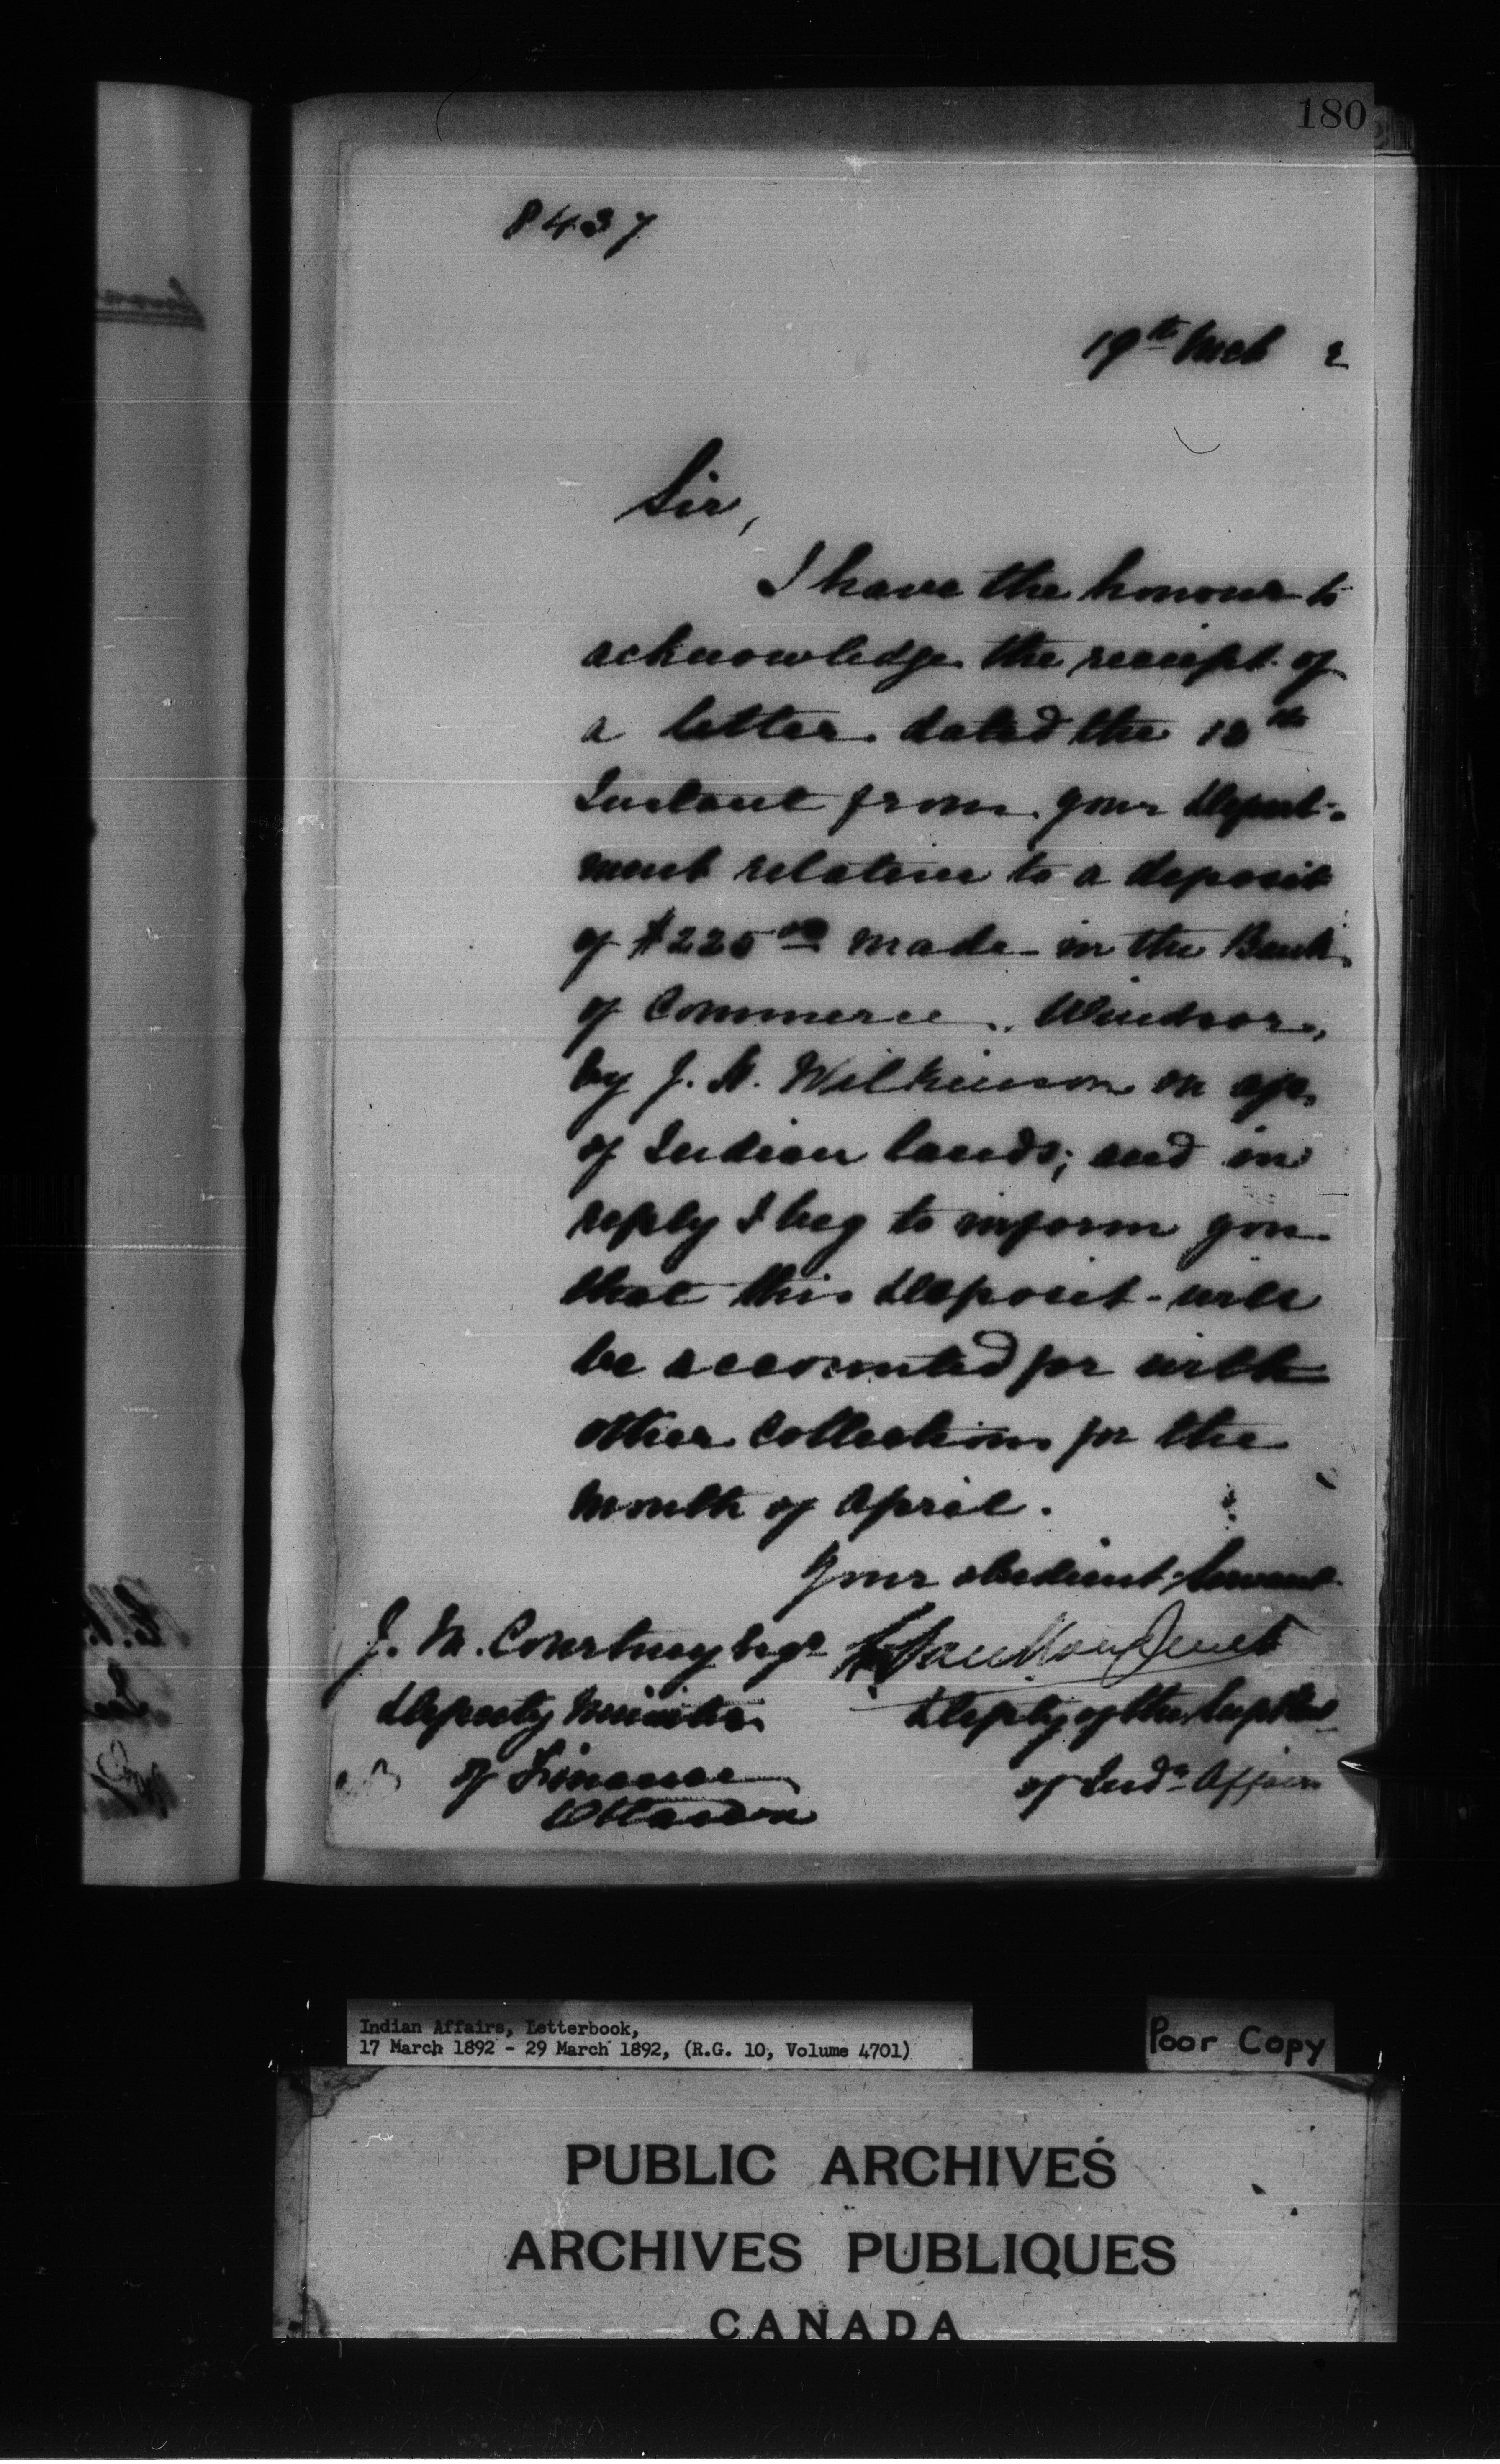 180
P437
19th Mch 2
Sir,
I have the honour to
acknowledge the receipt of
a letter dated the 18th
Instant from your Depart-
ment relative to a deposit
of $225 00 made in the Bank
of Commerce, Windsor,
by J. A. Wilkinson on a/c
of Indian lands; and in
reply I beg to inform you
that this deposit will
be accounted for with
other collections for the
month of April.
Your obedient Servant
J. M. Courtney Esqr L. Vankoughnet
Deputy Minister Deputy of the Supt Genl
of Finance of Indn Affairs
Ottawa
Indian Affairs, Letterbook,
17 March 1892 - 29 March 1892, (R.G. 10, Volume 4701)
Poor Copy
PUBLIC ARCHIVES
ARCHIVES PUBLIQUES
CANADA